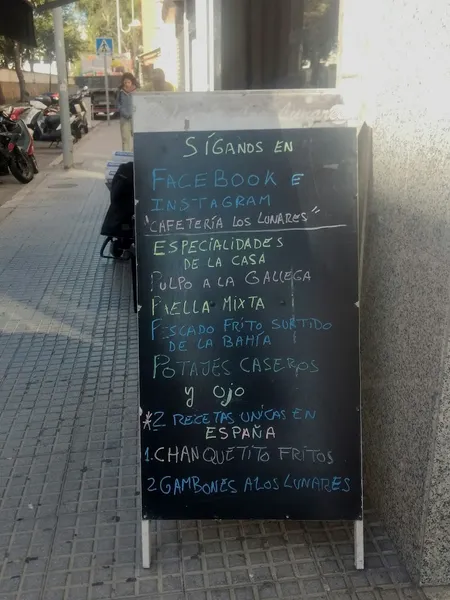 SÍGANOS EN
FACEBOOK E
INSTAGRAM
"CAFETERÍA LOS LUNARES"
ESPECIALIDADES
DE LA CASA
PULPO A LA GALLEGA
PAELLA MIXTA
PESCADO FRITO SURTIDO
DE LA BAHÍA
POTAJES CASEROS
y OJO
*2 RECETAS UNICAS EN
ESPAÑA
1.CHANQUETITO FRITOS
2 GAMBONES A LOS LUNARES